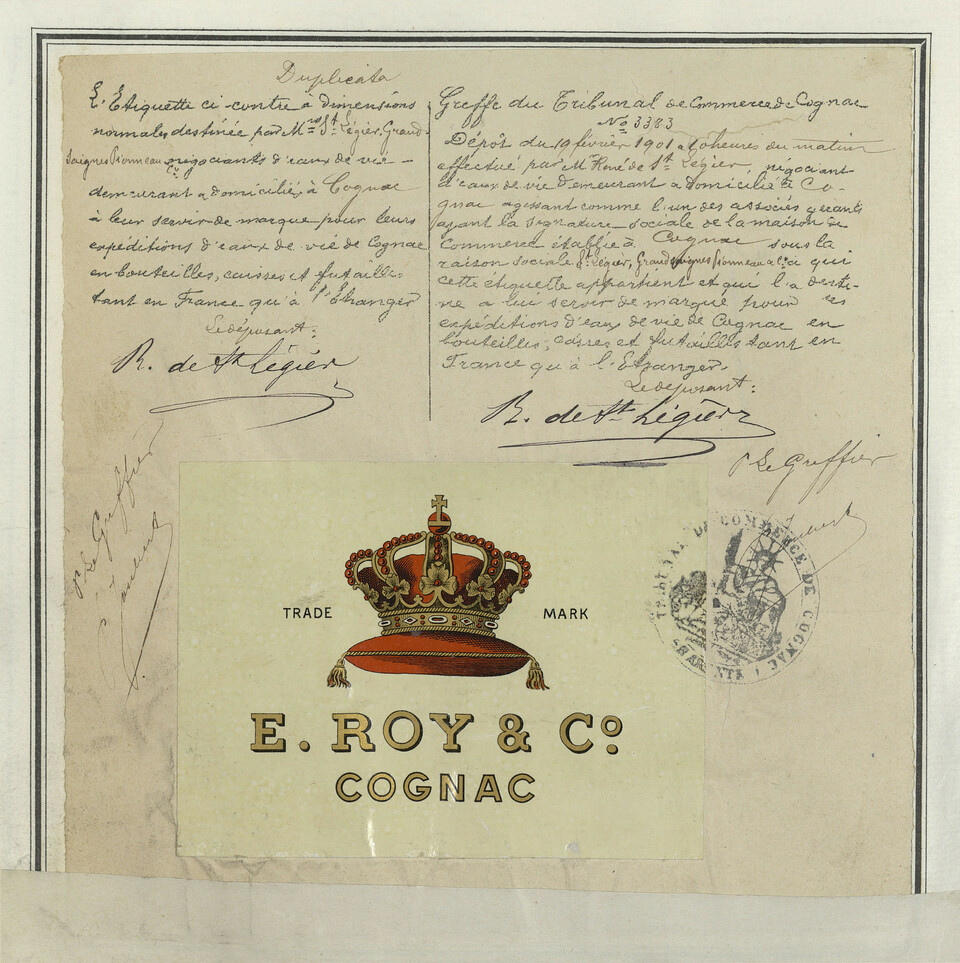 Duplicata
L'Etiquette ci-contre à dimensions
normales destinée par Mrs St Légier, Grand-
saignes Pionneau & Cie négociants d'eaux de vie -
demeurant & domiciliés à Cognac
à leur servir de marque pour leurs
expéditions d'eaux de vie de Cognac
en bouteilles, caisses et futailles
tant en France qu'à l'Etranger
Le déposant:
R. de St Légier
Greffe du Tribunal de Commerce de Cognac
No 3383
Dépôt du 19 février 1901 à heures du matin
effectué par Mr René de St Légier, négociant
d'eaux de vie demeurant & domicilié à Co-
gnac agissant comme l'un des associés gérants
ayant la signature sociale de la maison de
Commerce établie à Cognac sous la
raison sociale St Légier, Grandsaignes Pionneau & Cie à qui
cette étiquette appartient et qui l'a desti-
né à lui servir de marque pour ses
expéditions d'eaux de vie de Cognac en
bouteilles, caisses et futailles tant en
France qu'à l'Etranger.
Le déposant:
R. de St Légier
Pr Le Greffier
Pr Le Greffier
TRADE MARK
E. ROY & Co
COGNAC
TRIBUNAL DE COMMERCE DE COGNAC
CHARENTE